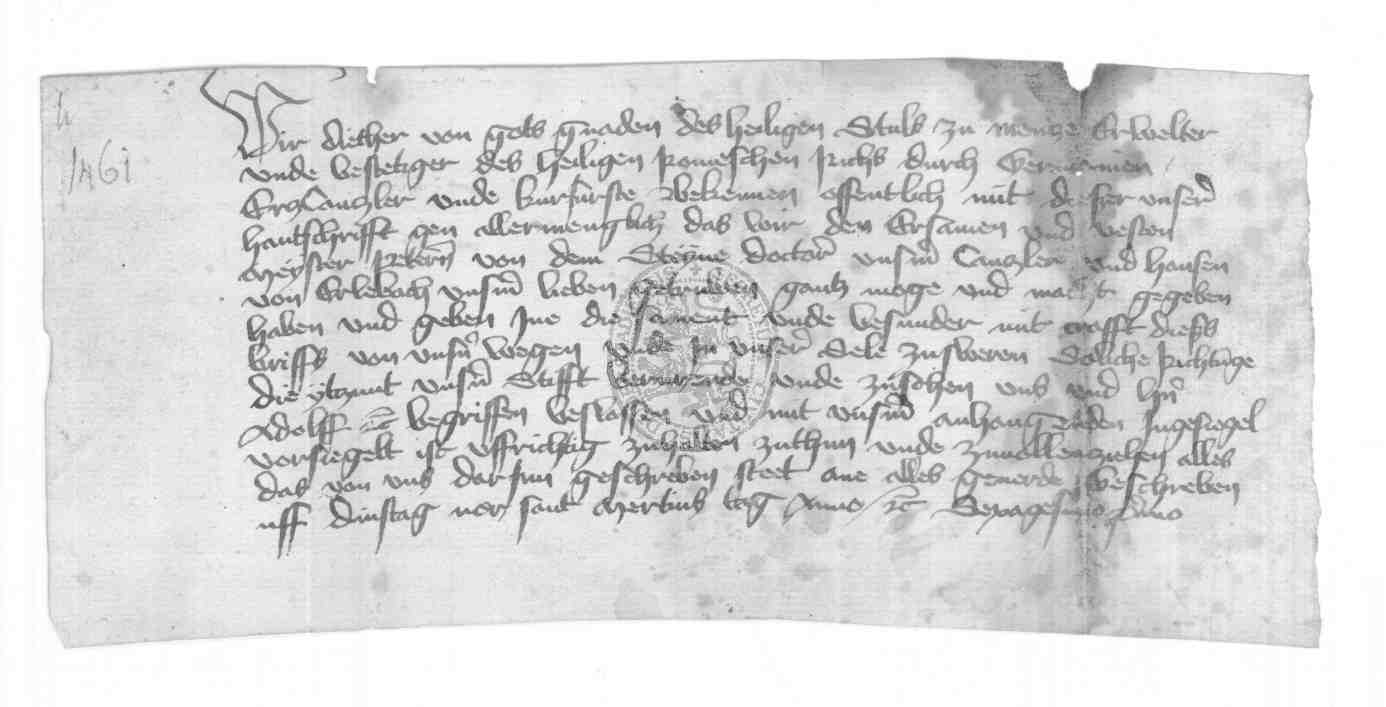 h
1461
Wir diether von gots gnaden des heiligen Stuls zu mentze Erwelter
unde bestetiger des heiligen Romeschen Richs durch Germanien
ErzCanzler unde kurfurste Bekennen offentlich mit dieser unser
hantschrifft gen allermenglich das wir den Ersamen und vesten
Meyster von dem Steyne doctor unsern Canzler und hansen
von Erlebach unsern lieben getruwen gantz moge und macht gegeben
haben und geben Ine die sament unde besunder mit crafft dieß
briffs von unsern wegen unde In unser Sele zusweren Soliche Richtunge
die ytzunt unserm Stifft unde zuschen uns und hern
Adolff ꝛc begriffen beslossen und mit unserm anhangenden Ingesiegel
versiegelt ist uffrichtig zuhalten zuthun unde zuvollenziehen alles
das von uns darjnn geschreben steet ane alles geuerde Geschreben
uff dinstag nor sant Mertins tag Anno ꝛc Sexagesimo primo